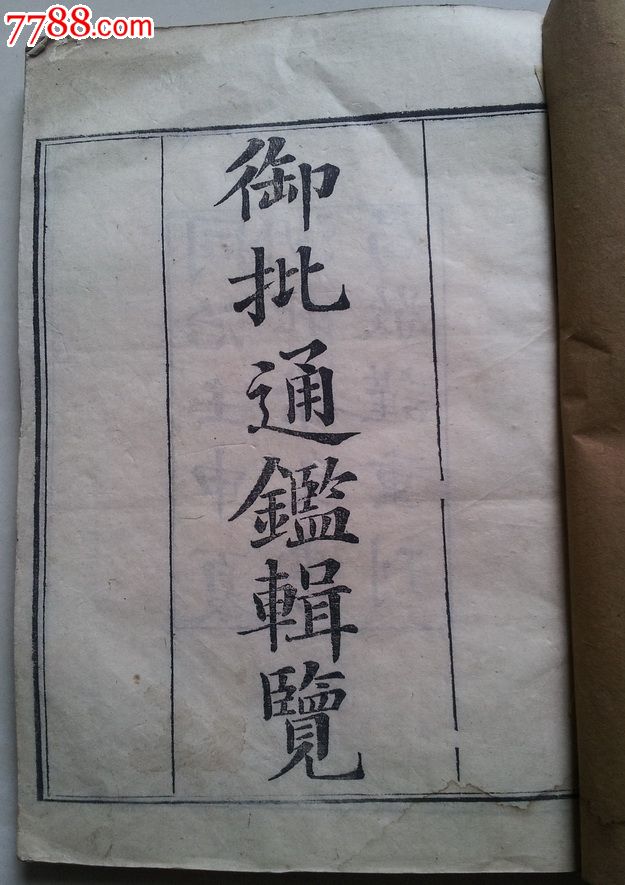 7788.com
御批通鑑輯覽